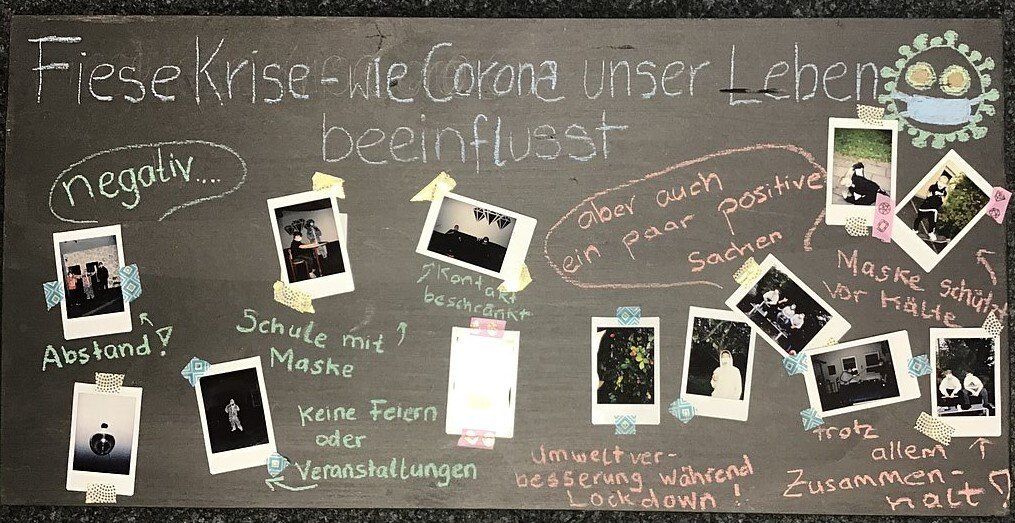 Fiese Krise - wie Corona unser Leben
beeinflusst
negativ....
Abstand!
Schule mit
Maske
Kontakt
beschränkt
Keine Feiern
oder
Veranstaltungen
aber auch
ein paar positive
Sachen
Maske schützt
vor Kälte
Umweltver-
besserung während
Lockdown!
trotz
allem
Zusammen-
halt!